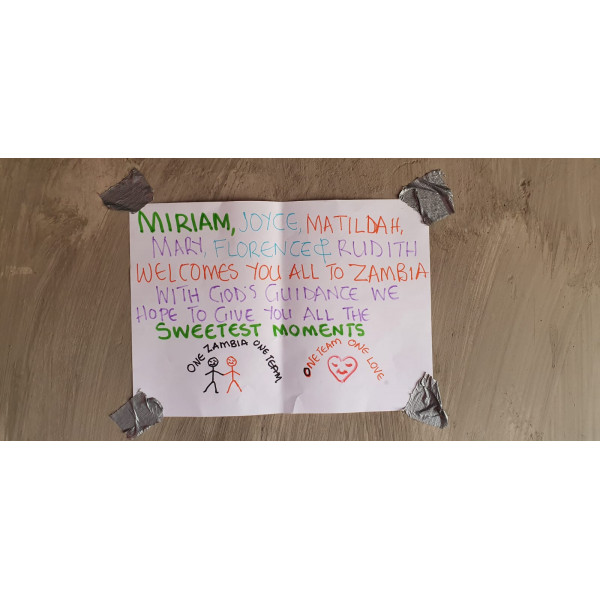 MIRIAM, JOYCE, MATILDAH,
MARY, FLORENCE & RUDITH
WELCOMES YOU ALL TO ZAMBIA
WITH GOD'S GUIDANCE WE
HOPE TO GIVE YOU ALL THE
SWEETEST MOMENTS
ONE ZAMBIA ONE TEAM
ONE TEAM ONE LOVE